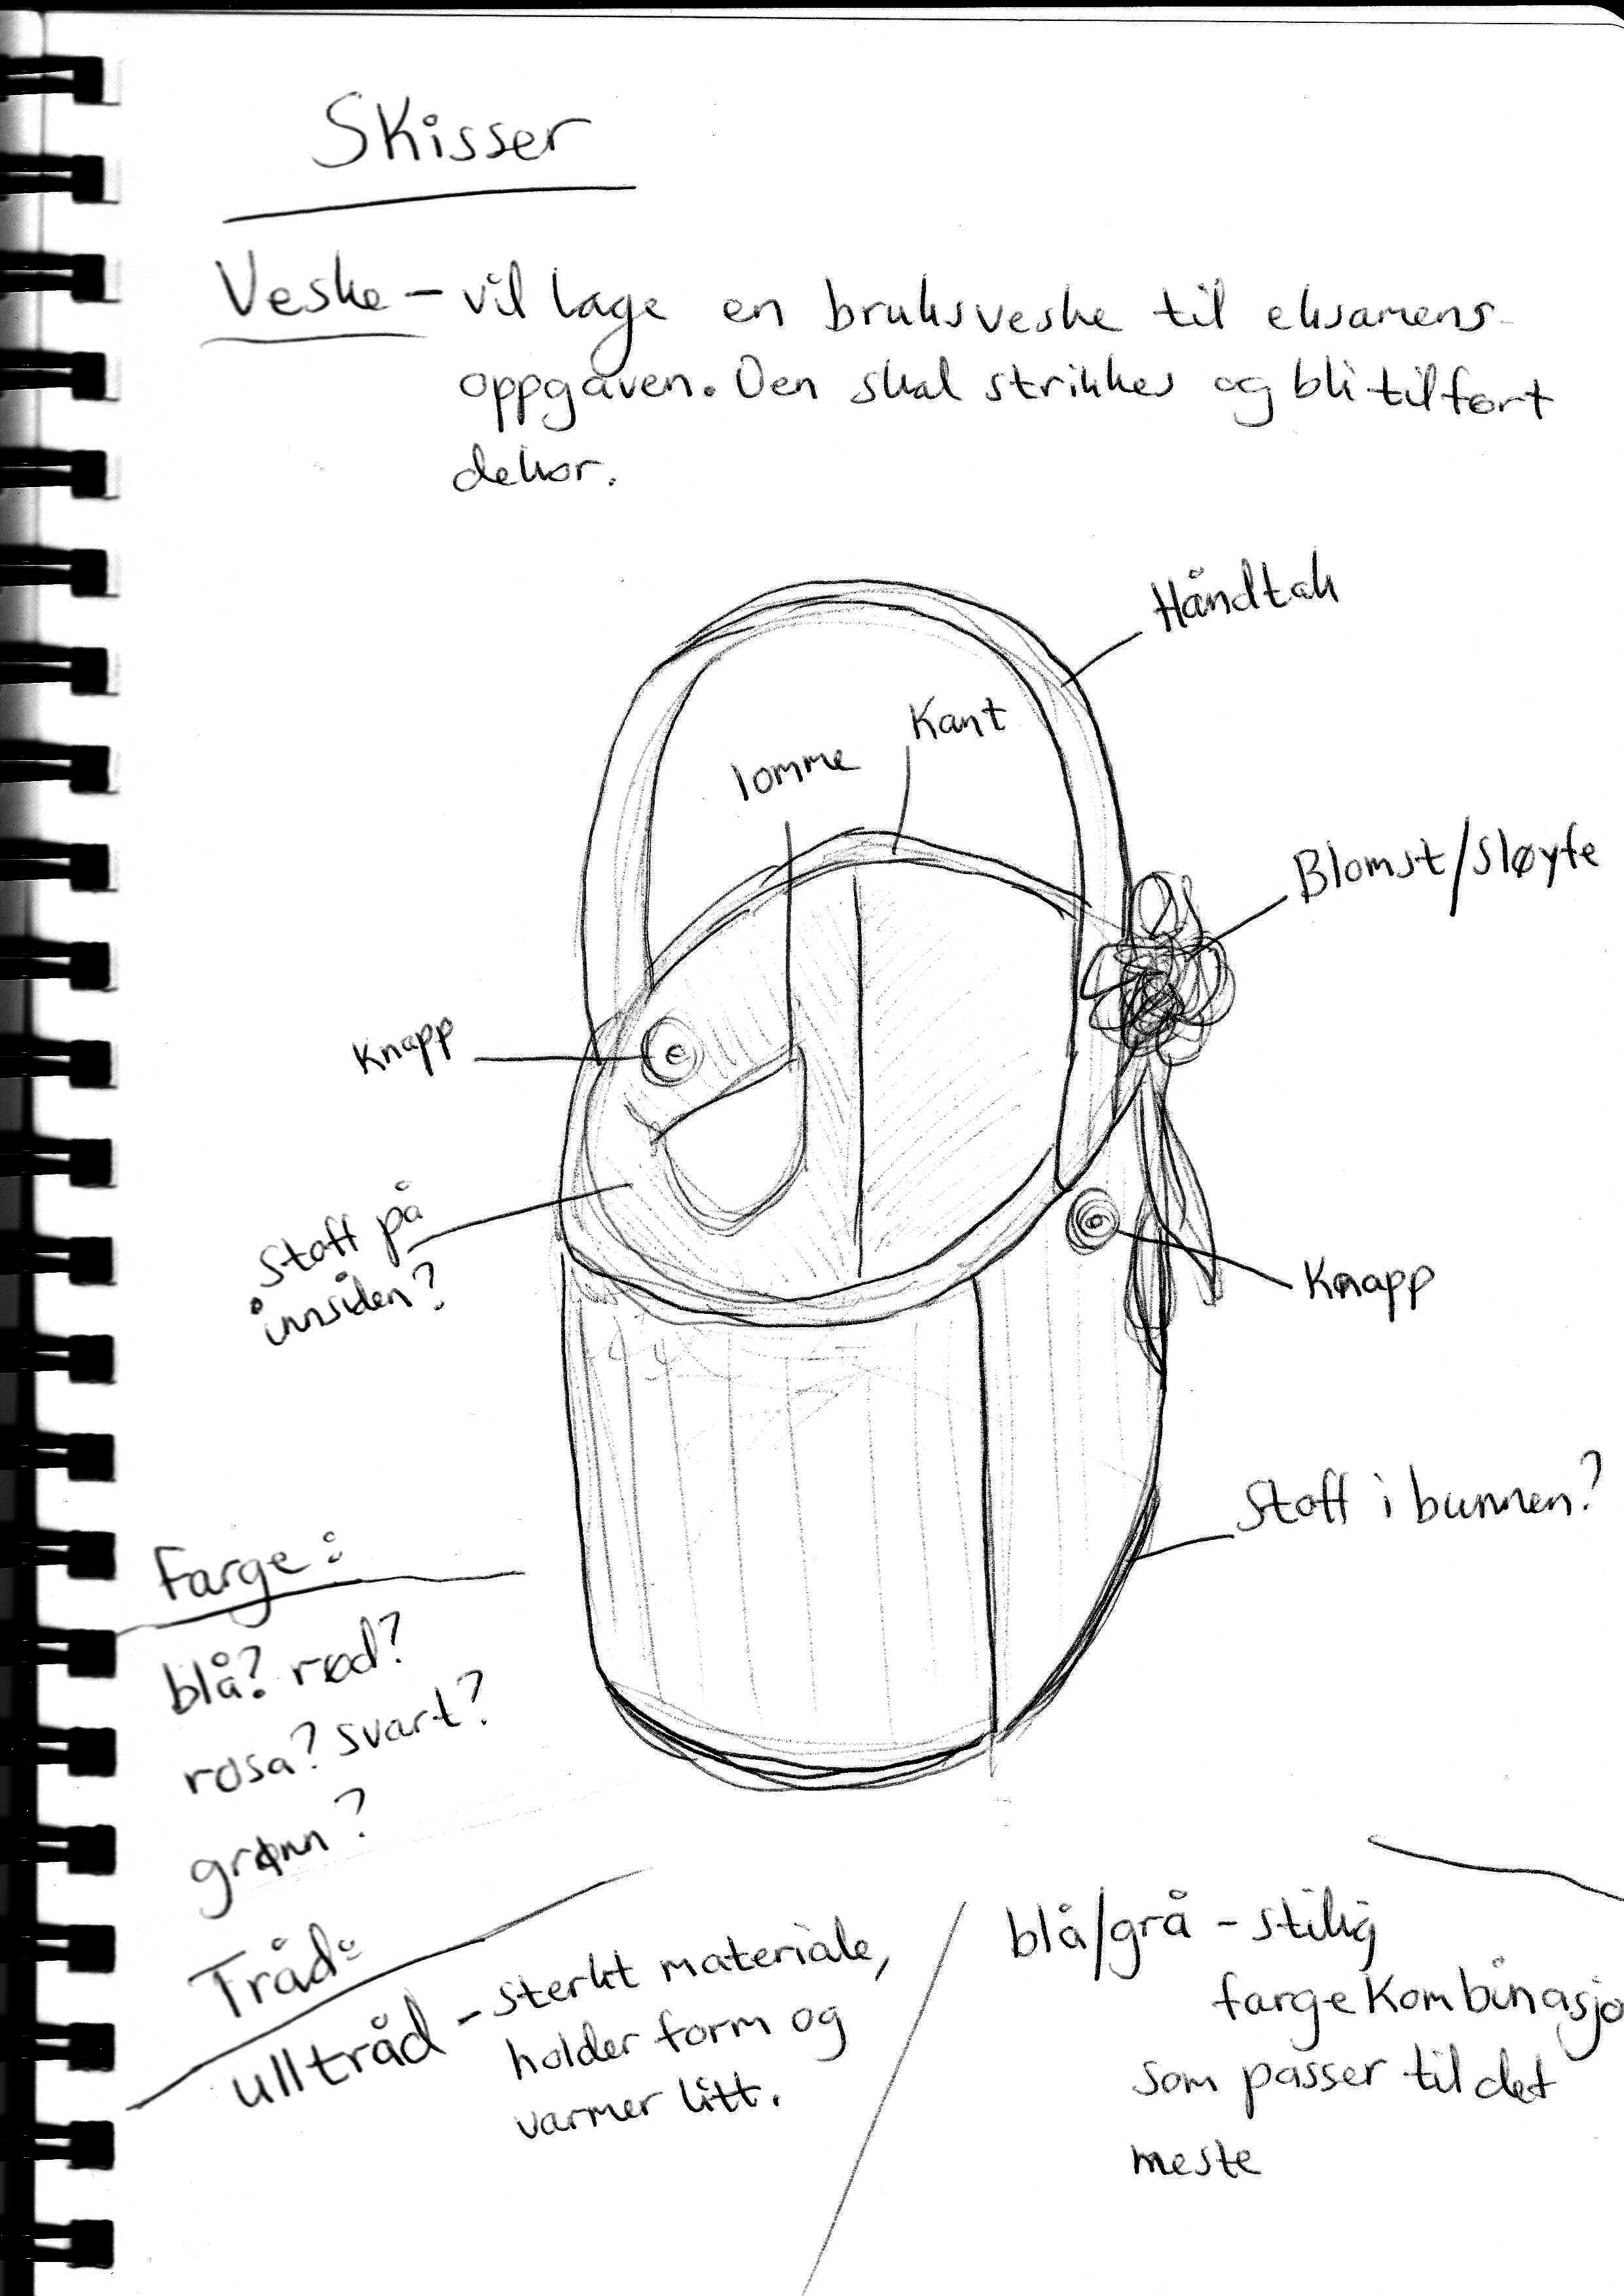 Skisser
Veske - vil lage en bruksveske til eksamens-
oppgaven. Den skal strikkes og bli tilført
dekor.
Håndtak
Kant
lomme
Blomst/sløyfe
Knapp
Stoff på
innsiden?
Knapp
Stoff i bunnen?
Farge:
blå? rød?
rosa? svart?
grønn?
Tråd:
ulltråd - sterkt materiale,
holder form og
varmer litt.
blå/grå - stilig
fargekombinasjo
som passer til det
meste